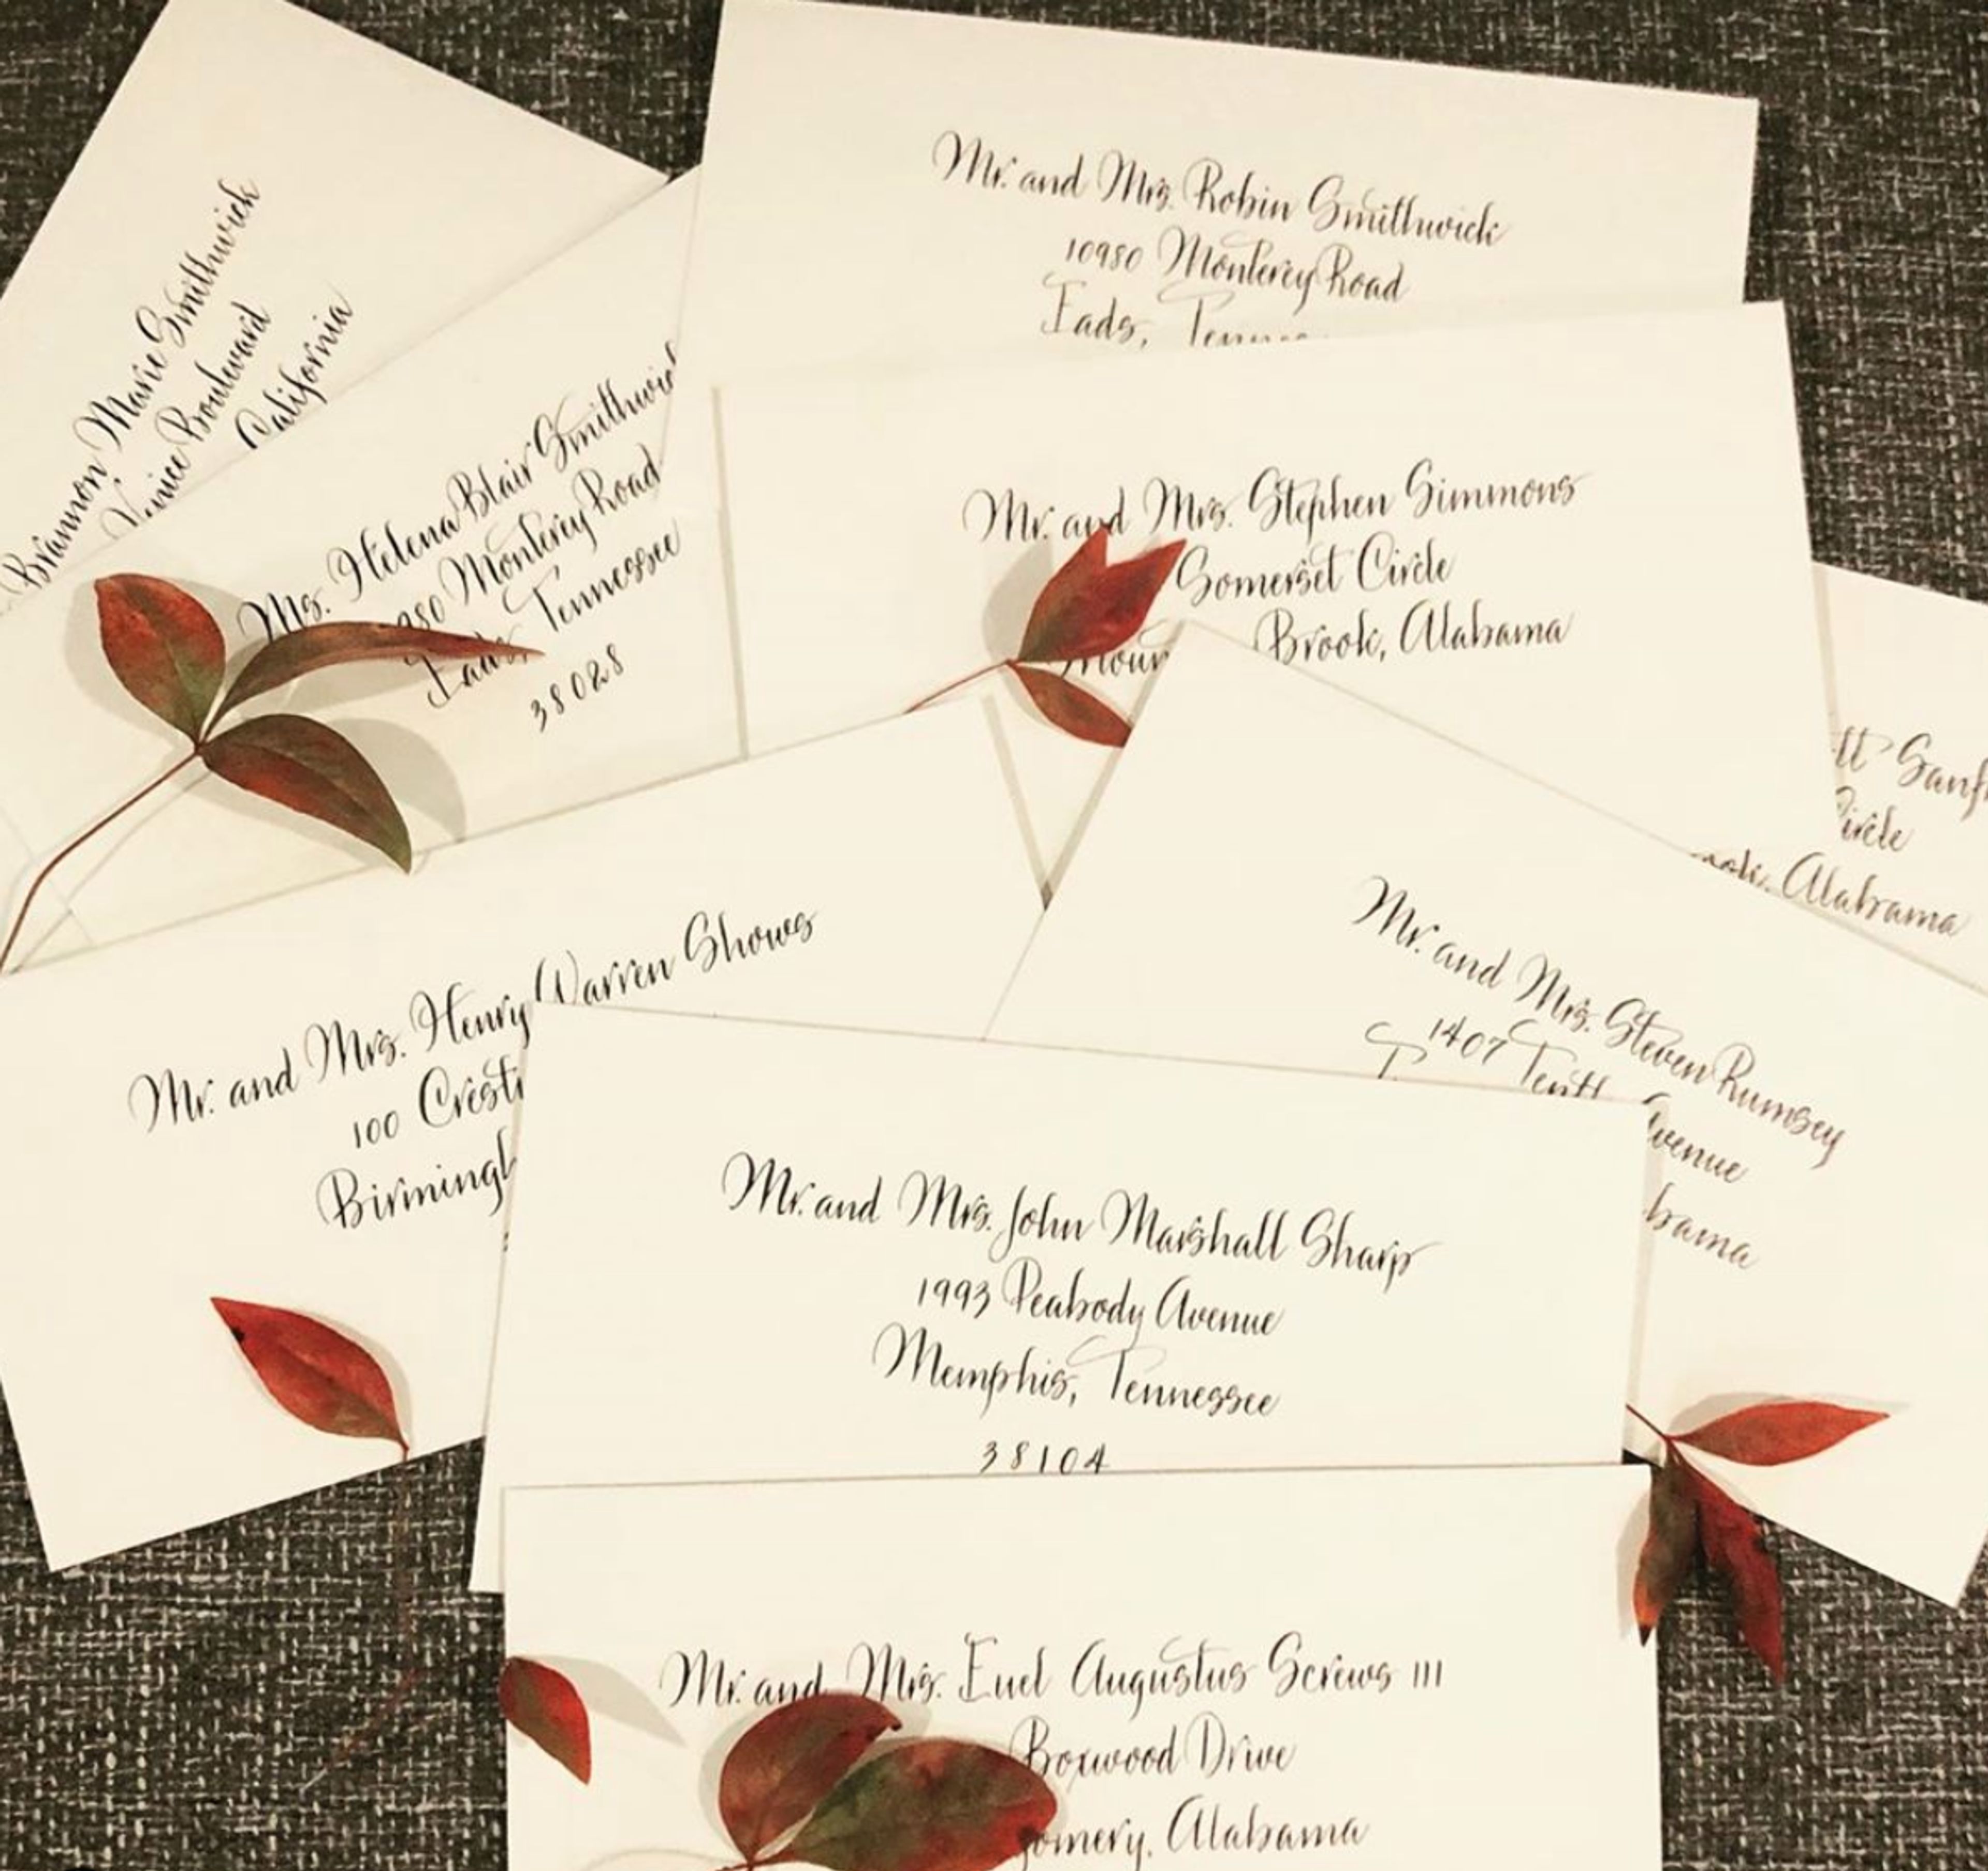 Brannon Marie Smithwick
Venice Boulevard
California
Ms. Helena Blair Smithwick
980 Monterey Road
Eads, Tennessee
38028
Mr. and Mrs. Robin Smithwick
10980 Monterey Road
Eads, Tennes
Mr. and Mrs. Stephen Simmons
Somerset Circle
Moun Brook, Alabama
tt Sanf
Circle
ook, Alabama
Mr. and Mrs. Henry Warren Shows
100 Cresti
Birmingh
Mr. and Mrs. Steven Rumsey
1407 Tenth Avenue
T bama
Mr. and Mrs. John Marshall Sharp
1993 Peabody Avenue
Memphis, Tennessee
38104
Mr. and Mrs. Euel Augustus Screws III
Boxwood Drive
gomery, Alabama